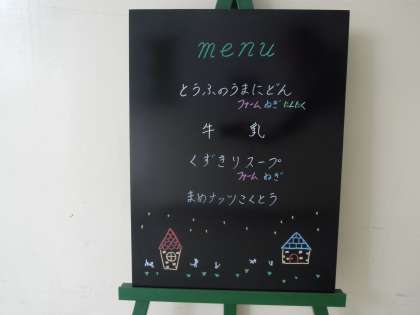 menu
とうふのうまにどん
ファーム ねぎ にんにく
牛乳
くずきりスープ
ファーム ねぎ
まめナッツこくとう